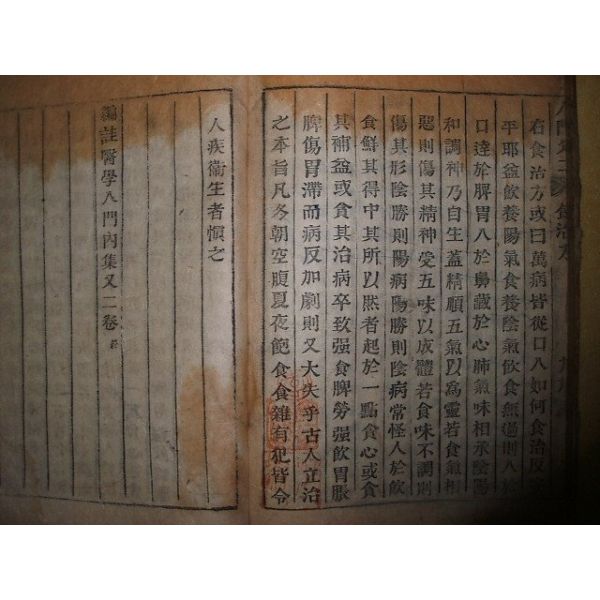 右食治方或曰萬病皆從口入如何食治反
平耶益飮養陽氣食養陰氣飮食無過則入於
口達於脾胃入於鼻藏於心肺氣味相承陰陽
和調神乃自生蓋精順五氣以爲靈若食氣相
惡則傷其精神受五味以成體若食味不調則
傷其形陰勝則陽病陽勝則陰病常怪人於飮
食鮮其得中其所以然者起於一點貪心或食
其補益或食其治病卒致强食脾勞强飮胃脹
脾傷胃滯而病反加劇則又大失乎古人立治
之本旨凡冬朝空腹夏夜飽食食雜有犯皆令
人疾衞生者愼之
編註醫學入門內集又二卷終